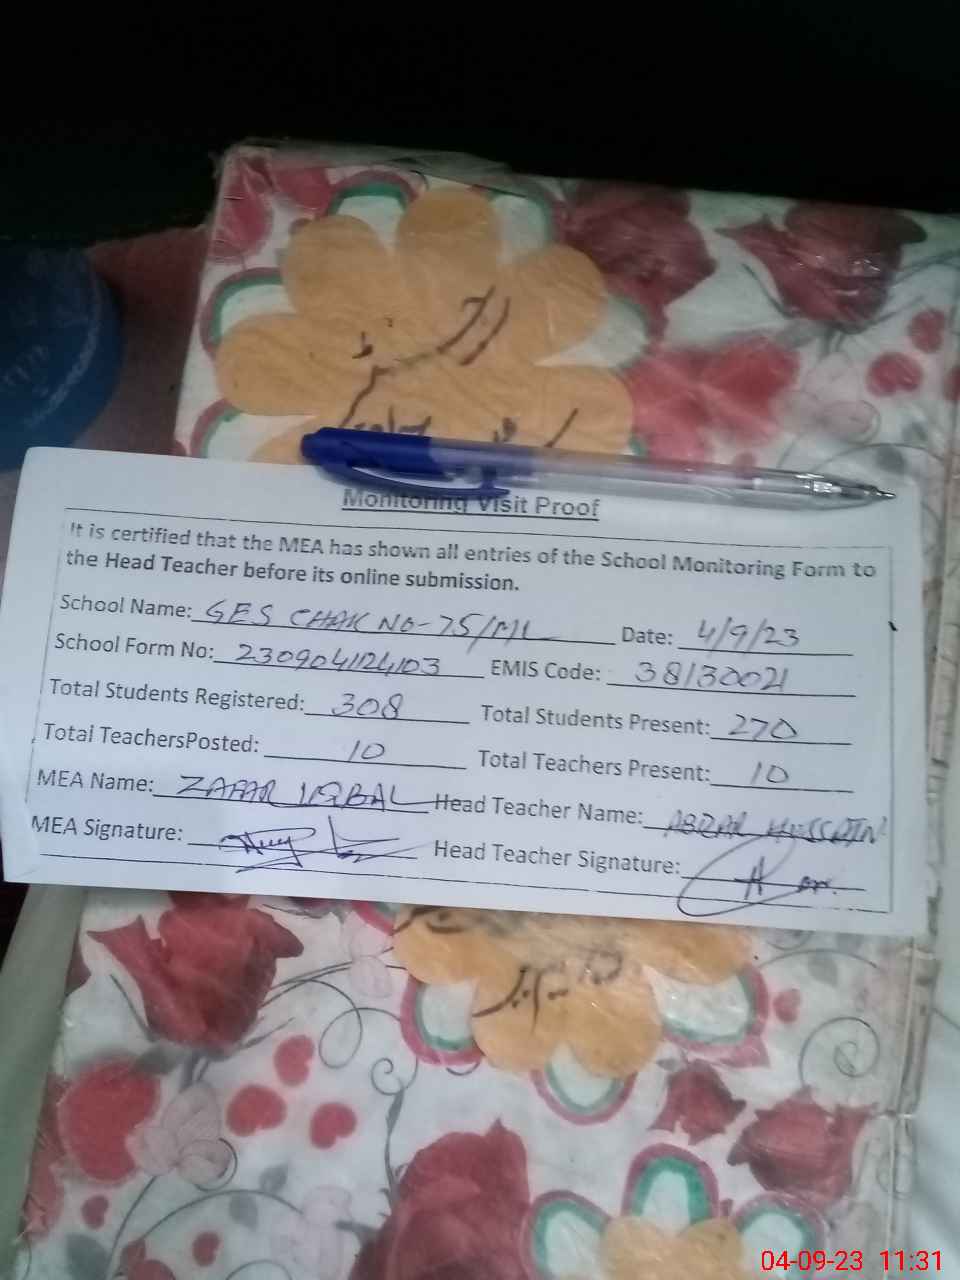 رجسٹر
Monitoring Visit Proof
It is certified that the MEA has shown all entries of the School Monitoring Form to
the Head Teacher before its online submission.
School Name: GES CHAK NO-75/ML Date: 4/9/23
School Form No: 230904124103 EMIS Code: 38130021
Total Students Registered: 308 Total Students Present: 270
Total TeachersPosted: 10 Total Teachers Present: 10
MEA Name: ZAFAR IQBAL Head Teacher Name: ABRAR HUSSAIN
MEA Signature: Head Teacher Signature:
04-09-23 11:31